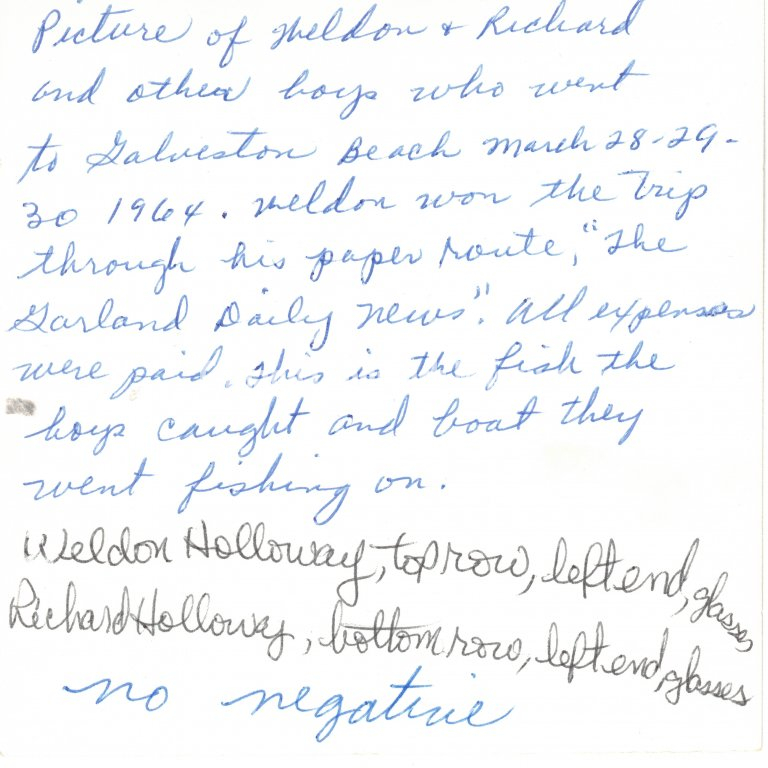 Picture of Weldon & Richard
and other boys who went
to Galveston Beach March 28-29-
30 1964. Weldon won the trip
through his paper route, "The
Garland Daily News". All expenses
were paid. This is the fish the
boys caught and boat they
went fishing on.
Weldon Holloway, top row, left end, glasses
Richard Holloway, bottom row, left end, glasses
no negative